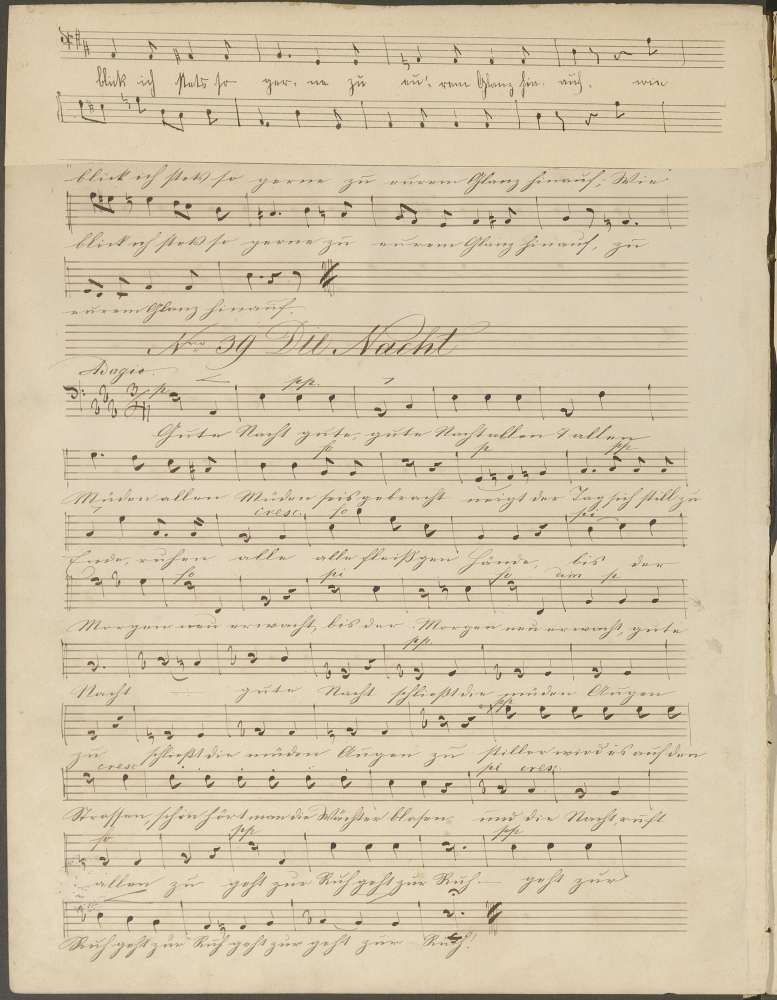 blick ich stets so ger- ne zu eu- rem Glanz hin- auf, wie
blick ich stets so gerne zu eurem Glanz hinauf; Wie
blick ich stets so gerne zu eurem Glanz hinauf, zu
eurem Glanz hinauf.
Nro 39 Die Nacht
Adagio.
p. pp.
Gute Nacht gute, gute Nacht allen allen
fo p. pp.
Müden allen Müden seis gebracht neigt der Tag sich still zu
cresc. fo pi
Ende, ruhen alle alle fleißgen Hände, bis der
fo pi fo dim p
Morgen neu erwacht, bis der Morgen neu erwacht, gute
pp.
Nacht gute Nacht schließt die müden Augen
pp
zu schließt die müden Augen zu stiller wird es auf den
cresc pi cresc.
Strassen schon hört man die Wächter blasen und die Nacht ruft
fo pp pp
allen zu geht zur Ruh geht zur Ruh – geht zur
Ruh geht zur Ruh geht zur geht zur Ruh!